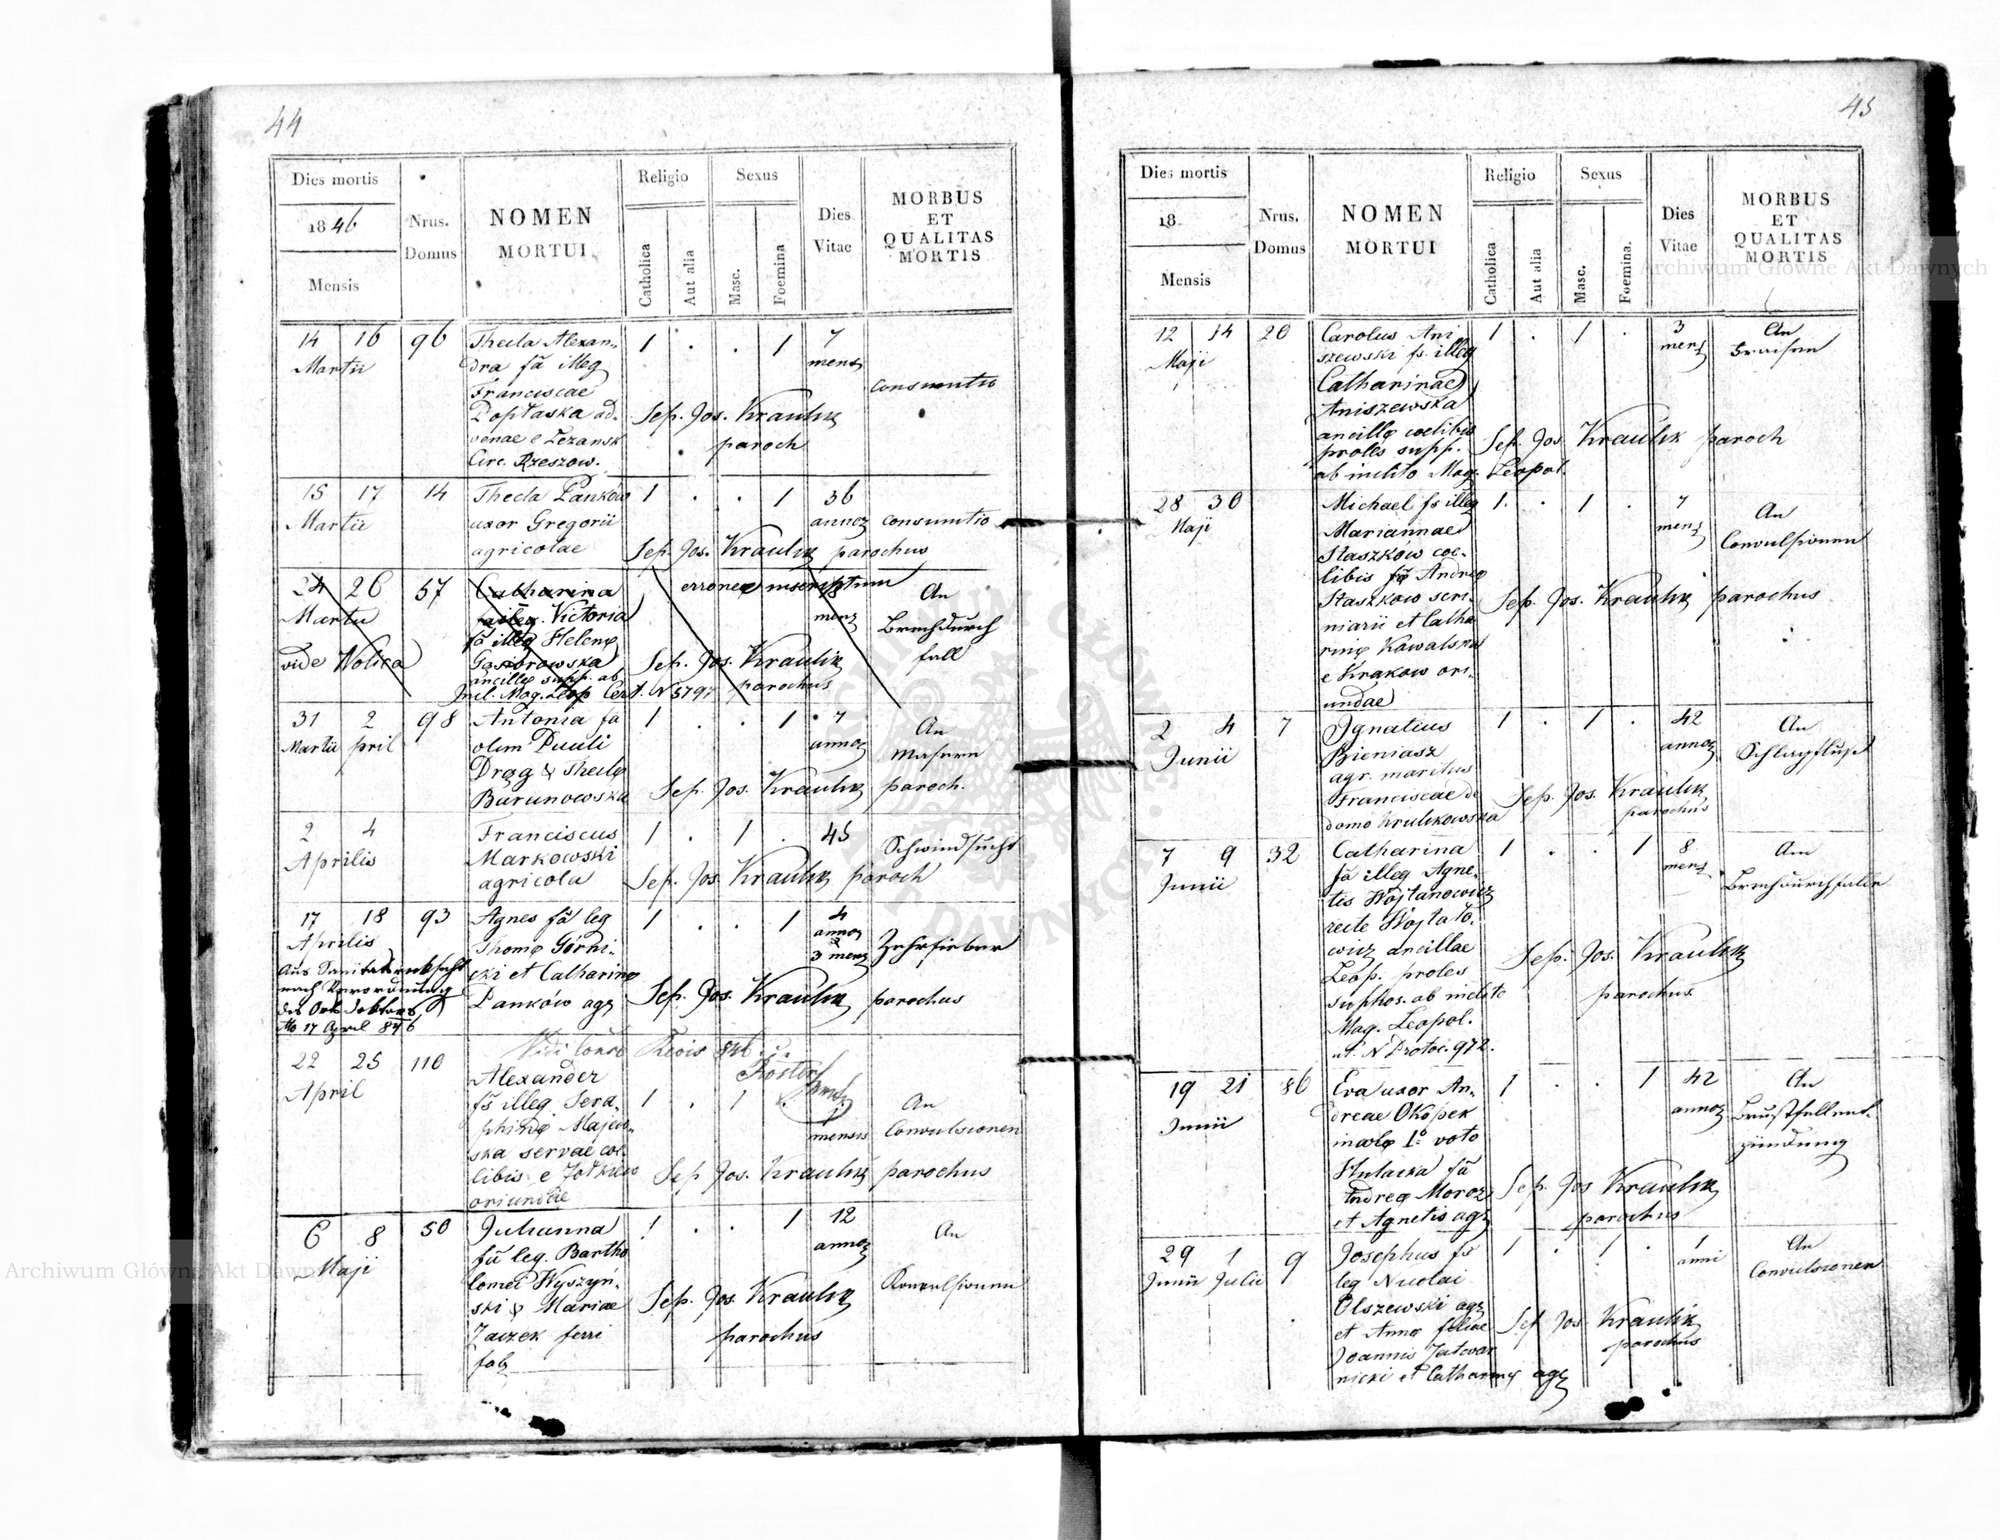 44
Dies mortis
1846
Mensis
Nrus.
Domus
NOMEN
MORTUI
Religio
Catholica
Aut alia
Sexus
Masc.
Foemina
Dies
Vitae
MORBUS
ET
QUALITAS
MORTIS
14 16 96 Thecla Alexan- 1 . . 1 7
Martii dra fa illeg mens
Franciscae consumtio
Poptaska ad- Sep. Jos. Kraulik
venae e Lezansk paroch
Circ. Rzeszow.
15 17 14 Thecla Panków 1 . . 1 36
Martii uxor Gregorii annor consumtio
agricolae Sep. Jos. Kraulik parochus
24 26 57 Catharina erronee inscriptum 18 An
Martii fa illeg. Victoria mens Brechdurch
fa illeg Helenę fall
vide Wolica Gasiorowska Sep. Jos. Kraulik
ancillę supp. ab
Incl. Mag. Leop Cert. N 5797 parochus
31 2 98 Antonia fa 1 . . 1 7 An
Martii pril olim Pauli annor Masern
Drąg & Theclę
Barunowska Sep. Jos. Kraulik paroch.
2 4 Franciscus 1 . 1 . 45
Aprilis Markowski Schwindsucht
agricola Sep. Jos. Kraulik paroch
17 18 93 Agnes fa leg 1 . . 1 4
Aprilis Thomę Górni- annor
& Zehrfieber
Aus Sanitätsrücksicht cki et Catharinę 3 mens
nach Verordnung
des Orts doktors Panków agr Sep. Jos. Kraulik parochus
Mo 17 April 846
22 25 110
April Alexander
fs illeg Sera- 1 . 1 . An
phinę Majew- mensis Convulsionen
ska servae coe-
libis e Zołkiew Sep Jos. Kraulik parochus
oriundae
6 8 50 Julianna 1 . . 1 12 An
Maji fa leg. Bartho annor
lomei Wyszyń- Konvulsionen
ski & Mariae Sep. Jos. Kraulik
Zaczek ferri parochus
fab
45
Dies mortis
18
Mensis
Nrus.
Domus
NOMEN
MORTUI
Religio
Catholica
Aut alia
Sexus
Masc.
Foemina.
Dies
Vitae
MORBUS
ET
QUALITAS
MORTIS
12 14 20 Carolus Ani 1 . 1 . 3 An
Maji szewski fs. illeg mens
Catharinae
Aniszewska
ancillę coelibis Sep. Jos Kraulik paroch
proles supp.
ab inclito Mag. Leopol.
28 30 Michael fs illeg 1. . 1 . 7 An
Maji Mariannae mens Convulsionen
Staszkow coe-
libis fa Andreę
Staszkow scri- Sep. Jos. Kraulik parochus
niarii et Catha
rinę Kowalska
e Krakow ori-
undae
2 4 7 Ignatius 1 . 1 . 42 An
Junii Bieniasz annor Schlagfluss
agr. maritus
Franciscae de Sep. Jos. Kraulik
domo Krulikowska parochus
7 9 32 Catharina 1 . . 1 8 Am
Junii fa illeg Agne- mens Brechdurchfalle
tis Wojtanowicz
recte Wojtato-
wicz ancillae Sep. Jos. Kraulik
Leop. proles parochus
suppos. ab inclito
Mag. Leopol.
ut. N Protoc. 972.
19 21 86 Eva uxor An- 1 . . 1 42 An
Junii dreae Okopek annor Brustfellent-
incolę 1º voto zündung
Hulacka fa
Andreę Moroz Sep. Jos Kraulik
et Agnetis agr parochus
29 1 9 Josephus fs 1 . 1 . 1 An
Junii Julii leg Nicolai anni Convulsionen
Olszewski agr
et Annę filiae Sep Jos Kraulik
Joannis Jatwar parochus
nicki et Catharinę agr
Archiwum Główne Akt Dawnych
Archiwum Główne Akt Dawnych
ARCHIWUM GŁÓWNE AKT DAWNYCH